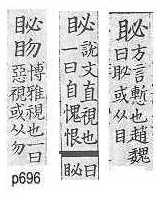 䎵方言慙也趙魏
曰䎵或从目
䀣說文直視也
一曰自愧恨
䀣曰
䀣博雅視也一曰
惡視或从勿
p696